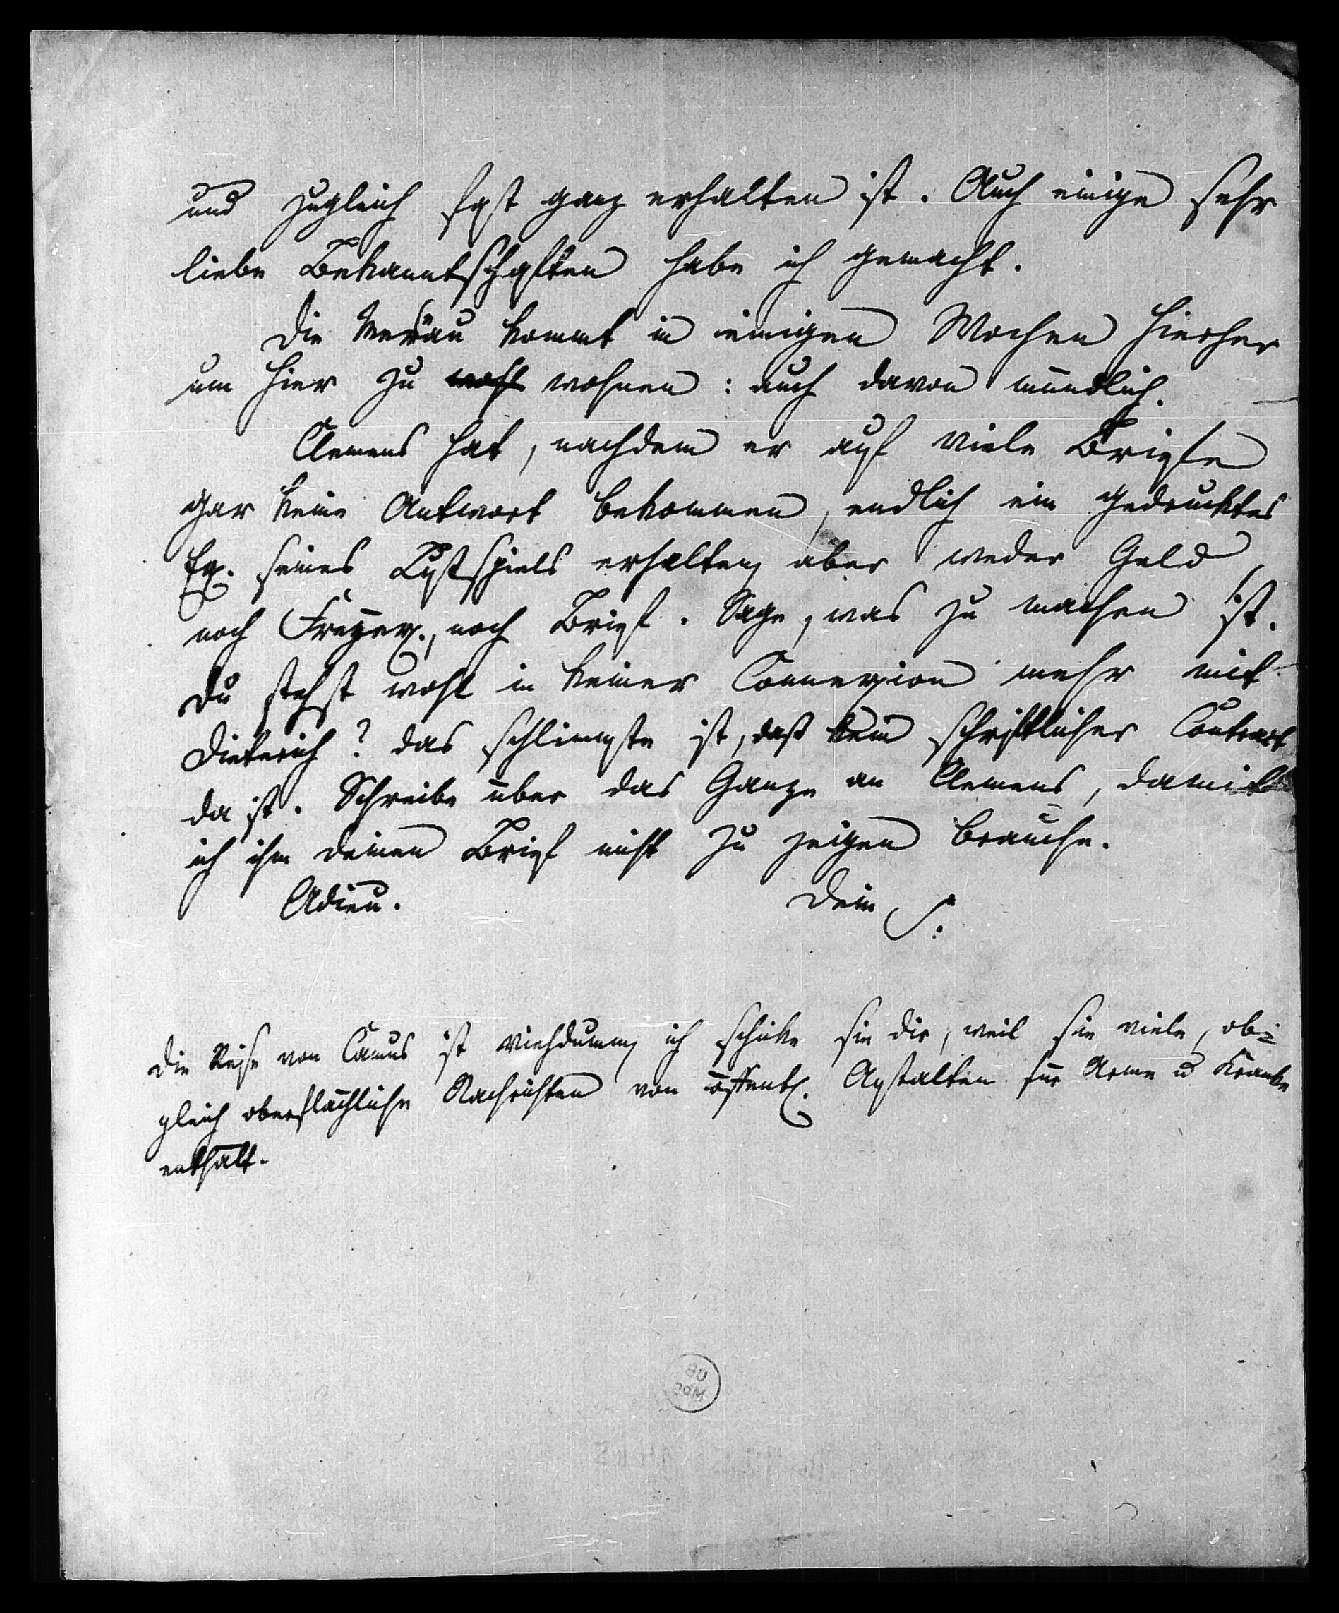 und zugleich fast ganz erhalten ist. Auch einige sehr
liebe Bekanntschaften habe ich gemacht.
Die Mereau kommt in einigen Wochen hierher
um hier zu wohl wohnen: auch davon mündlich.
Clemens hat, nachdem er auf viele Briefe
gar keine Antwort bekommen, endlich ein gedrucktes
Ex. seines Lustspiels erhalten, aber weder Geld,
noch Freyex., noch Brief. Sage, was zu machen ist.
Du stehst wohl in keiner Connexion mehr mit
Dieterich? das schlimmste ist, daß kein schriftlicher Contract
da ist. Schreibe über das Ganze an Clemens, damit
ich ihm deinen Brief nicht zu zeigen brauche.
Adieu. Dein S.
Die Reise von Camus ist viehdumm, ich schicke sie dir, weil sie viele, ob-
gleich oberflächliche Nachrichten von öffentl. Anstalten für Arme u Kranke
enthält.